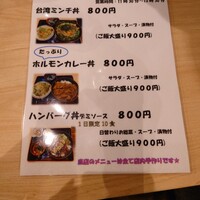 台湾ミンチ丼 800円
サラダ・スープ・漬物付
(ご飯大盛り900円)
たっぷり
ホルモンカレー丼 800円
サラダ・スープ・漬物付
(ご飯大盛り900円)
ハンバーグ丼デミソース
1日限定10食 800円
日替わりお総菜・スープ・漬物付
(ご飯大盛り900円)
当店のメニューは全て店内手作りです☆